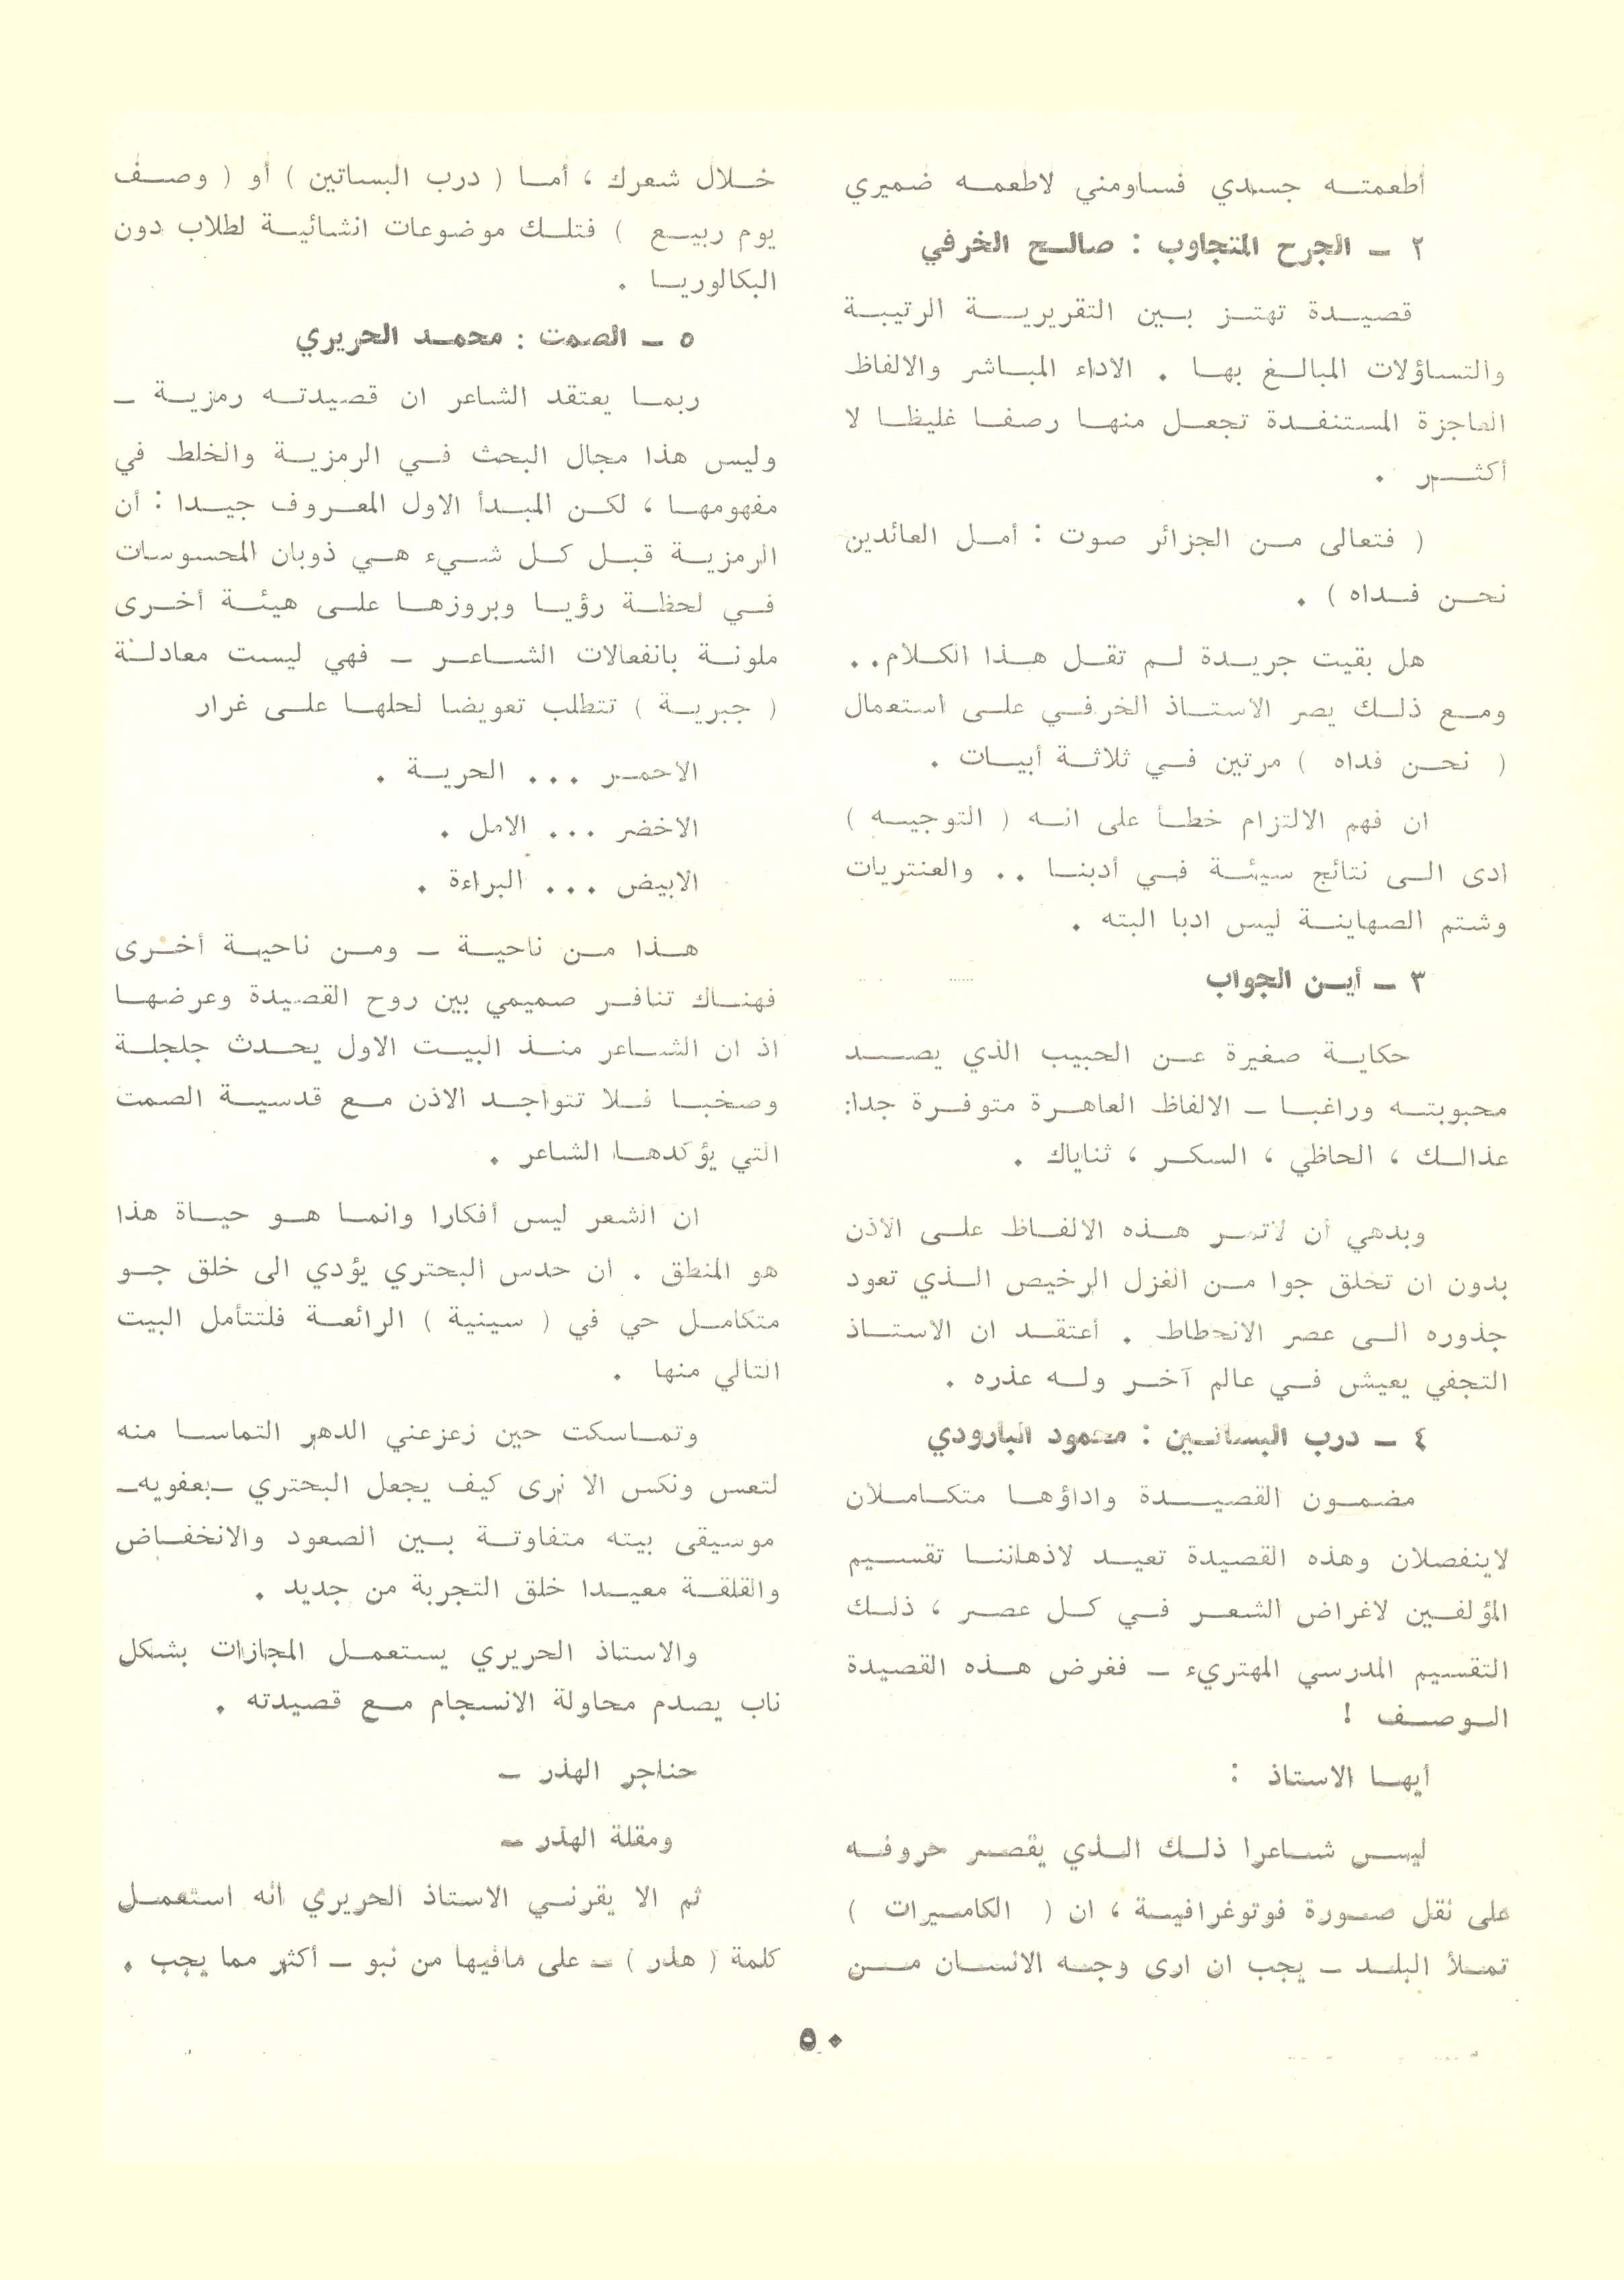 أطعمته جسدي فساومني لاطعمه ضميري
٢ ـ الجرح المتجاوب : صالح الخرفي
قصيدة تهتز بين التقريرية الرتيبة
والتساؤلات المبالغ بها . الاداء المباشر والالفاظ
العاجزة المستنفدة تجعل منها رصفا غليظا لا
أكثر .
( فتعالى من الجزائر صوت : أمل العائدين
نحن فداه ) .
هل بقيت جريدة لم تقل هذا الكلام..
ومع ذلك يصر الاستاذ الخرفي على استعمال
( نحن فداه ) مرتين في ثلاثة أبيات .
ان فهم الالتزام خطأ على انه ( التوجيه )
ادى الى نتائج سيئة في أدبنا .. والعنتريات
وشتم الصهاينة ليس ادبا البته .
٣ ـ أين الجواب
حكاية صغيرة عن الحبيب الذي يصد
محبوبته وراغبا ـ الالفاظ العاهرة متوفرة جدا:
عذالك ، الحاظي ، السكر ، ثناياك .
وبدهي أن لاتمر هذه الالفاظ على الاذن
بدون ان تخلق جوا من الغزل الرخيص الذي تعود
جذوره الى عصر الانحطاط . أعتقد ان الاستاذ
التجفي يعيش في عالم آخر وله عذره .
٤ ـ درب البساتين : محمود البارودي
مضمون القصيدة واداؤها متكاملان
لاينفصلان وهذه القصيدة تعيد لاذهاننا تقسيم
المؤلفين لاغراض الشعر في كل عصر ، ذلك
التقسيم المدرسي المهتريء ـ ففرض هذه القصيدة
الوصف !
أيها الاستاذ :
ليس شاعرا ذلك الذي يقصر حروفه
على نقل صورة فوتوغرافية ، ان ( الكاميرات )
تملأ البلد ـ يجب ان ارى وجه الانسان من
خلال شعرك ، أما ( درب البساتين ) أو ( وصف
يوم ربيع ) فتلك موضوعات انشائية لطلاب دون
البكالوريا .
٥ ـ الصمت : محمد الحريري
ربما يعتقد الشاعر ان قصيدته رمزية ـ
وليس هذا مجال البحث في الرمزية والخلط في
مفهومها ، لكن المبدأ الاول المعروف جيدا : أن
الرمزية قبل كل شيء هي ذوبان المحسوسات
في لحظة رؤيا وبروزها على هيئة أخرى
ملونة بانفعالات الشاعر ـ فهي ليست معادلة
( جبرية ) تتطلب تعويضا لحلها على غرار
الاحمر ... الحرية .
الاخضر ... الامل .
الابيض ... البراءة .
هذا من ناحية ـ ومن ناحية أخرى
فهناك تنافر صميمي بين روح القصيدة وعرضها
اذ ان الشاعر منذ البيت الاول يحدث جلجلة
وصخبا فلا تتواجد الاذن مع قدسية الصمت
التي يؤكدها الشاعر .
ان الشعر ليس أفكارا وانما هو حياة هذا
هو المنطق . ان حدس البحتري يؤدي الى خلق جو
متكامل حي في ( سينية ) الرائعة فلتتأمل البيت
التالي منها .
وتماسكت حين زعزعني الدهر التماسا منه
لتعس ونكس الا نرى كيف يجعل البحتري ـبعفويهـ
موسيقى بيته متفاوتة بين الصعود والانخفاض
والقلقة معيدا خلق التجربة من جديد .
والاستاذ الحريري يستعمل المجازات بشكل
ناب يصدم محاولة الانسجام مع قصيدته .
حناجر الهذر ـ
ومقلة الهذر ـ
ثم الا يقرني الاستاذ الحريري انه استعمل
كلمة ( هذر ) ـ على مافيها من نبو ـ أكثر مما يجب .
٥٠